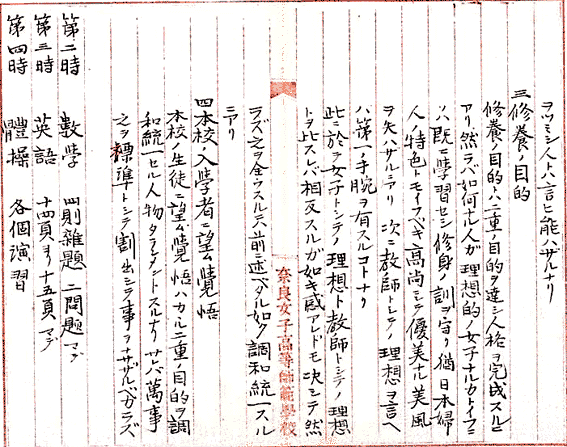 ヲツミシ人トハ言ヒ能ハザルナリ
三修養ノ目的
修養ノ目的トハ二重ノ目的ヲ達シ人格ヲ完成スルニ
アリ然ラバ如何ナル人が理想的ノ女子ナルカトイフニ
ソハ既ニ學習セシ修身ノ訓ヲ守リ猶日本婦
人ノ特色トモイフベキ高尚ニシテ優美ナル美風
ヲ失ハザルニアリ 次ニ教師トシテノ理想ヲ言ヘ
バ第一ノ手腕ヲ有スルコトナリ
此ニ於テ女子トシテノ理想ト教師トシテノ理想
トヲ比スレバ相反スルガ如キ感アレドモ决シテ然
ラズ之ヲ全ウスルニハ前ニ述ベタル如ク調和統一スル
ニアリ
奈良女子高等師範學校
四本校入學者ニ望ム覺悟
本校ノ生徒ニ望ム覺悟ハカヽル二重ノ目的ヲ調
和統一セル人物タランコトスルナリ サレバ萬事
之ヲ標準トシテ割出シテ事ヲナサザルベカラズ
第二時 數學 四則雜題 二問題マデ
第三時 英語 十四頁ヨリ十五頁マデ
第四時 體操 各個演習